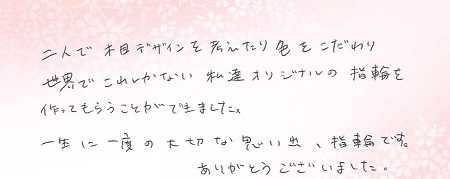 二人で木目デザインを考えたり色をこだわり
世界でこれしかない私達オリジナルの指輪を
作ってもらうことができました。
一生に一度の大切な思い出、指輪です。
ありがとうございました。